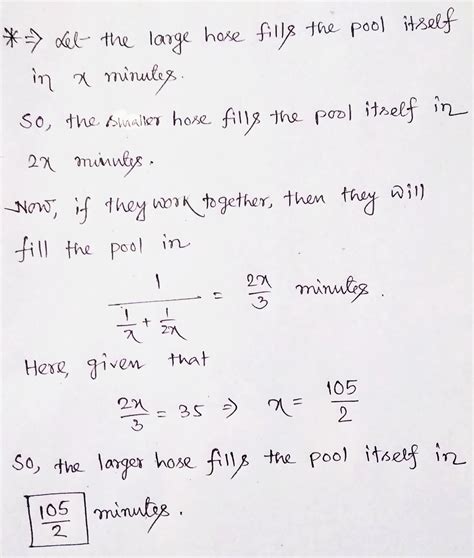 *⇒ Let the large hose fills the pool itself
in x minutes.
So, the smaller hose fills the pool itself in
2x minutes.
Now, if they work together, then they will
fill the pool in
1/(1/x + 1/2x) = 2x/3 minutes.
Here, given that
2x/3 = 35 ⇒ x = 105/2
So, the larger hose fills the pool itself in
105/2 minutes.